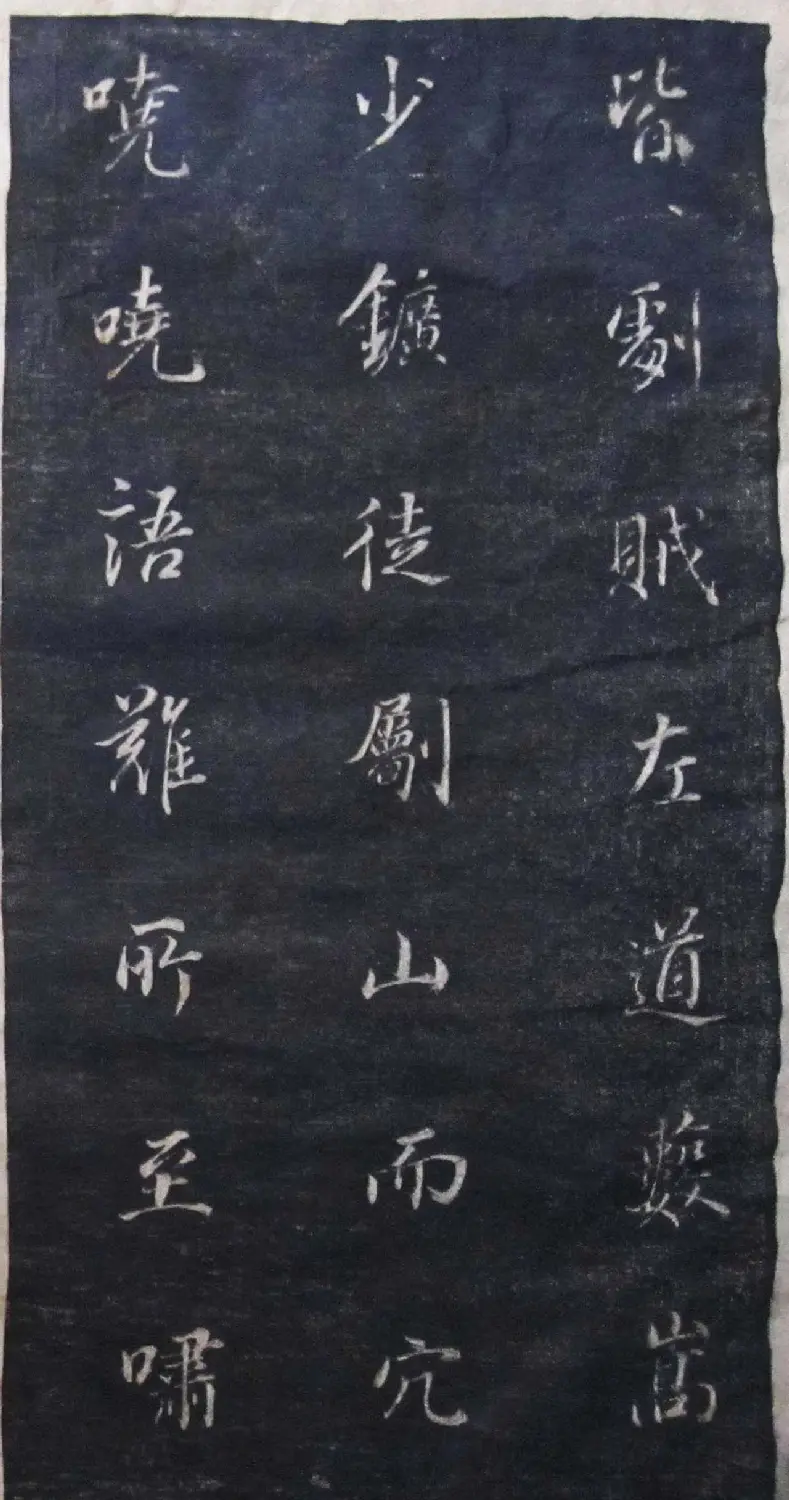 劇賊左道藪嵩
少鑛徒劚山而穴
嘵嘵語難所至嘯